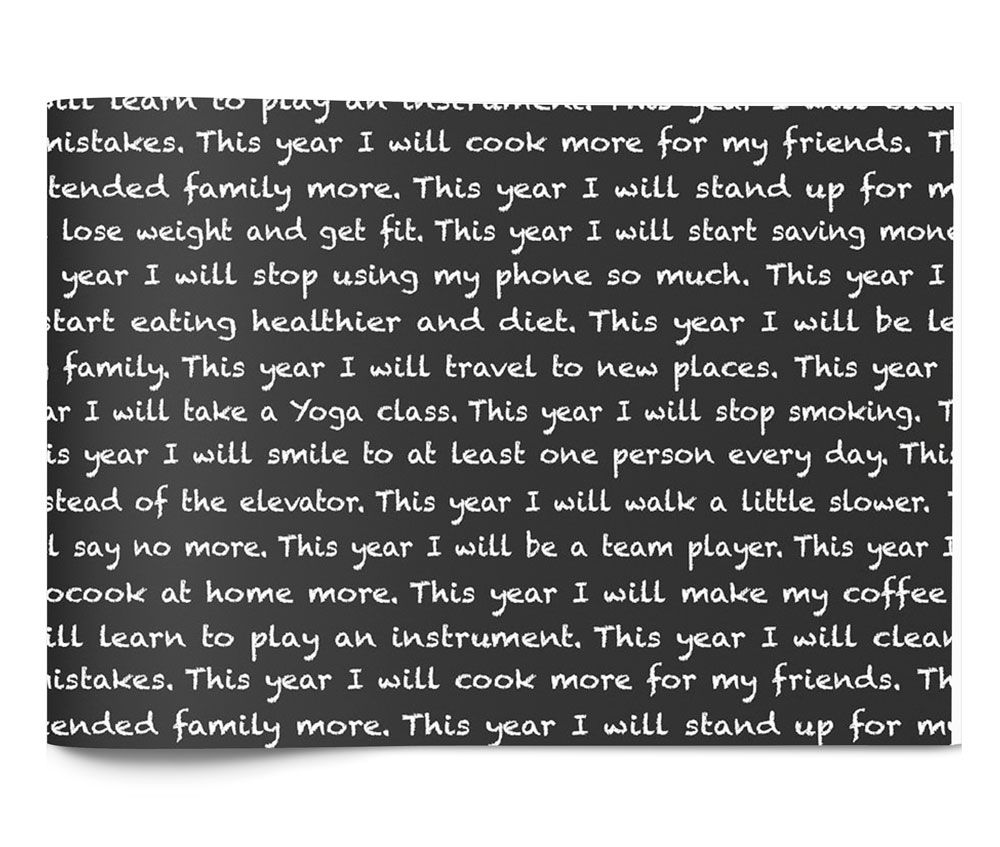 will learn to play an instrument. This year I will clean
mistakes. This year I will cook more for my friends. Th
tended family more. This year I will stand up for m
lose weight and get fit. This year I will start saving mone
year I will stop using my phone so much. This year I
start eating healthier and diet. This year I will be le
family. This year I will travel to new places. This year
ar I will take a Yoga class. This year I will stop smoking. T
is year I will smile to at least one person every day. This
stead of the elevator. This year I will walk a little slower.
l say no more. This year I will be a team player. This year I
ocook at home more. This year I will make my coffee
ill learn to play an instrument. This year I will clean
istakes. This year I will cook more for my friends. Th
tended family more. This year I will stand up for my